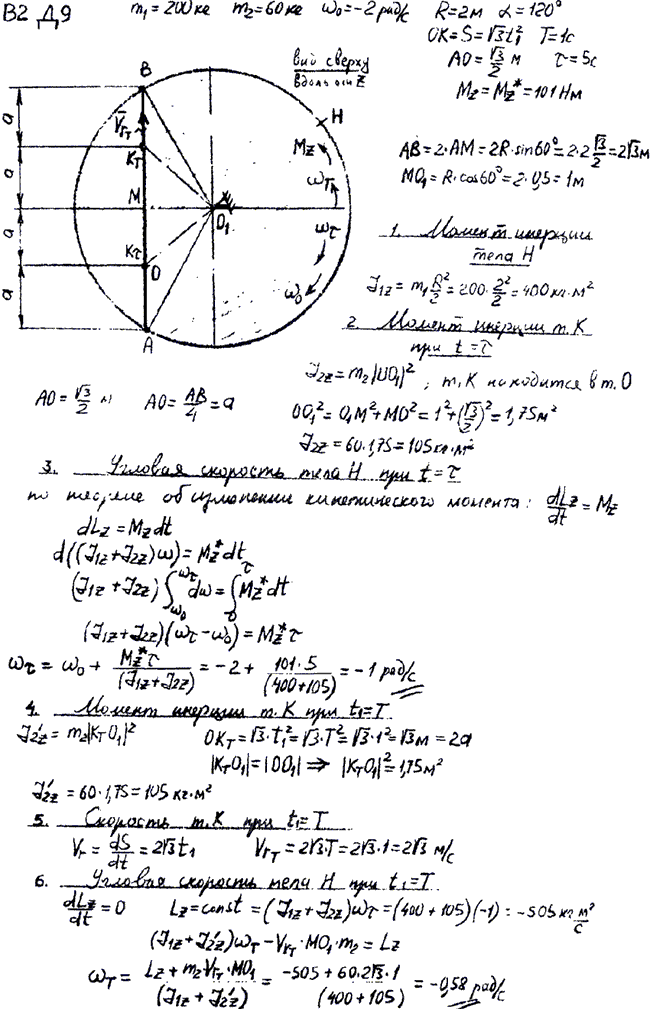 В2 Д9 m₁=200 кг m₂=60 кг ω₀=-2 рад/с R=2м α=120°
OK=S=√3t₁² T=1c
AO=√3/2 м τ=5c
Mz=Mz*=101 Нм
вид сверху
вдоль оси z
B
H
a
V̄rт
Kт
Mz
ωт
a
M
O₁
a
Kτ
O
ωτ
ω₀
a
A
AB=2·AM=2R·sin60°=2·2√3/2=2√3м
MO₁=R·cos60°=2·0,5=1м
1. Момент инерции
тела H
J₁z=m₁R²/2=200·2²/2=400кг·м²
2. Момент инерции т.K
при t=τ
J₂z=m₂|OO₁|² ; т.K находится в т.O
AO=√3/2 м AO=AB/4=a
OO₁²=O₁M²+MO²=1²+(√3/2)²=1,75м²
J₂z=60·1,75=105кг·м²
3. Угловая скорость тела H при t=τ
по теореме об изменении кинетического момента: dLz/dt=Mz
dLz=Mzdt
d((J₁z+J₂z)ω)=Mz*dt
(J₁z+J₂z)∫ω₀ωτ dω=∫0τ Mz*dt
(J₁z+J₂z)(ωτ-ω₀)=Mz*τ
ωτ=ω₀+Mz*τ/(J₁z+J₂z)=-2+101·5/(400+105)=-1 рад/с
4. Момент инерции т.K при t₁=T
J₂z'=m₂|KтO₁|² OKт=√3·t₁²=√3·T²=√3·1²=√3м=2a
|KтO₁|=|OO₁| ⇒ |KтO₁|²=1,75м²
J₂z'=60·1,75=105 кг·м²
5. Скорость т.K при t₁=T
Vr=dS/dt=2√3t₁ Vrт=2√3T=2√3·1=2√3 м/с
6. Угловая скорость тела H при t₁=T
dLz/dt=0 Lz=const=(J₁z+J₂z)ωτ=(400+105)(-1)=-505 кг м²/с
(J₁z+J₂z')ωт-Vrт·MO₁·m₂=Lz
ωт=Lz+m₂Vrт·MO₁/(J₁z+J₂z')=-505+60·2√3·1/(400+105)=-0,58 рад/с